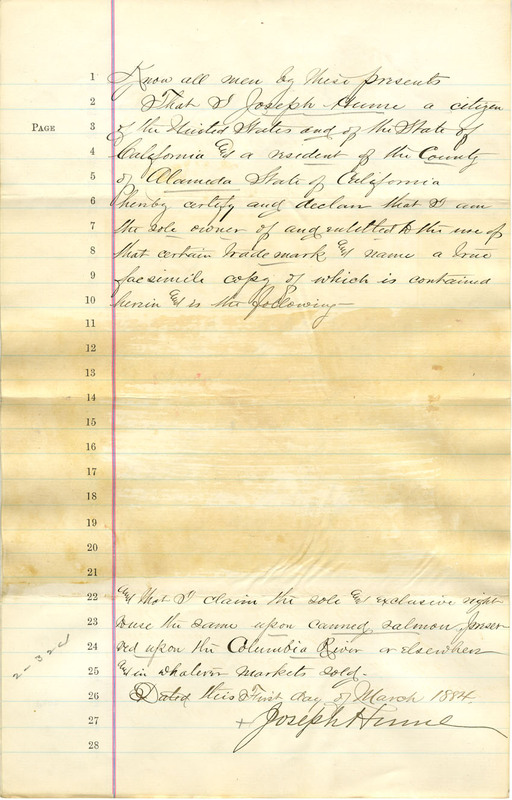 1 Know all men by these presents
2 That I Joseph Hume a citizen
PAGE 3 of the United States and of the State of
4 California & a resident of the County
5 of Alameda State of California
6 hereby certify and declare that I am
7 the sole owner of and entitled to the use of
8 that certain trade mark & name a true
9 facsimile copy of which is contained
10 herein & is the following
11
12
13
14
15
16
17
18
19
20
21
22 and that I claim the sole & exclusive right
23 to use the same upon canned salmon preser
24 ved upon the Columbia River or elsewhere
25 & in whatever markets sold.
26 Dated this First day of March 1884.
27 + Joseph Hume
28
2-324